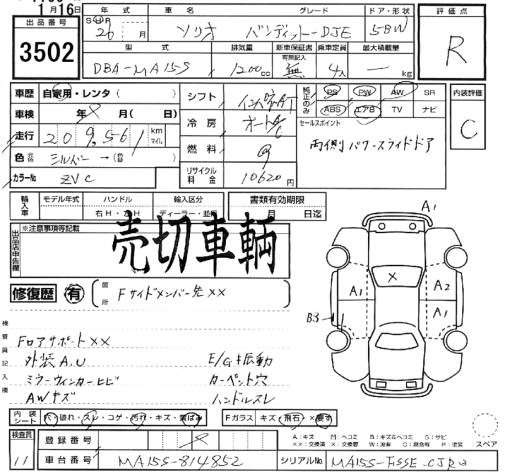 1月16日
出品番号
3502
年式 車名 グレード ドア・形状
26 月 ソリオ バンディット-DJE 5BW
型式 排気量 新車保証書 有無記入 乗車定員 最大積載量
DBA-MA15S 1200cc 無 4人 kg
評価点
R
車歴 自家用・レンタ( )
車検 年 月
走行 209,561 km マイル
色 シルバー→( )
カラーNo ZVC
シフト インパネAT
冷房 オートA/C
燃料 G
リサイクル料金 10620円
純正のみ PS PW AW SR
ABS エアB TV ナビ
セールスポイント
両側パワースライドドア
内装評価
C
輸入車 モデル年式 ハンドル 輸入区分
年 右H・左H ディーラー・並行
書類有効期限
月 日迄
出品店申告欄
※注意事項等記載
売切車輌
修復歴 有 箇所 FサイドメンバーXX
検査員記入欄
FロアサポートXX
外装A.U
ミラーウィンカーヒビ
AWキズ
E/G振動
カーペット穴
ハンドルスレ
A1
X
A1
A2
A1
B3
内装シート 穴・破れ・スレ・コゲ・汚れ・キズ・黄ばみ
Fガラス キズ・飛石・
スペア
A:キズ M:ヘコミ B:キズ&ヘコミ S:サビ
検査員
11
登録番号
車台番号 MA15S-814852
シリアルNo MA15S-